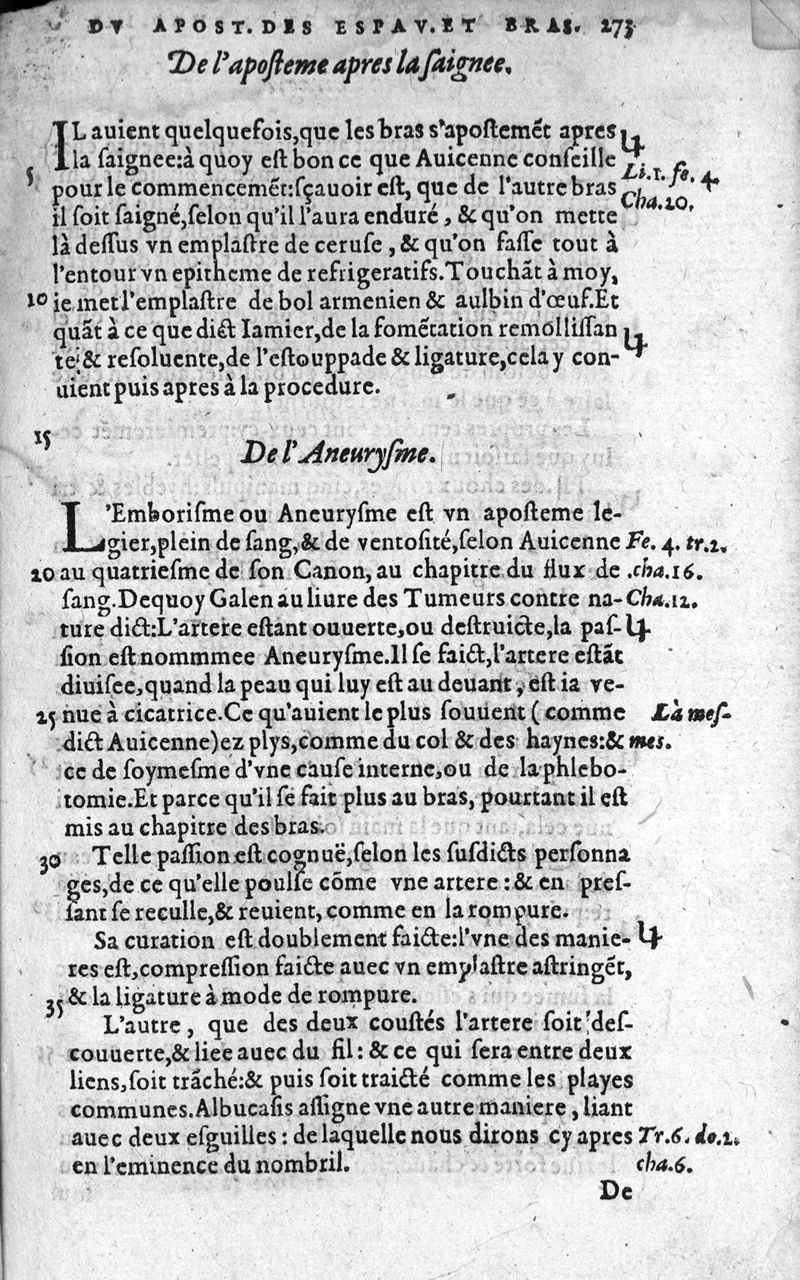 DV APOST. DES ESPAV. ET BRAS. 275
De l'aposteme apres la saignee.
IL auient quelquefois, que les bras s'apostemēt apres
la saignee: à quoy est bon ce que Auicenne conseille Li.1. fe. 4
5 pour le commencemēt: sçauoir est, que de l'autre bras Cha.20.
il soit saigné, selon qu'il l'aura enduré, & qu'on mette
là dessus vn emplastre de ceruse, & qu'on fasse tout à
l'entour vn epitheme de refrigeratifs. Touchāt à moy,
10 ie met l'emplastre de bol armenien & aulbin d'œuf. Et
quāt à ce que dict Iamier, de la fomētation remollissan
te: & resoluente, de l'estouppade & ligature, cela y con-
uient puis apres à la procedure.
15
De l'Aneurysme.
L'Emborisme ou Aneurysme est vn aposteme le-
gier, plein de sang, & de ventosité, selon Auicenne Fe. 4. tr.2.
20 au quatriesme de son Canon, au chapitre du flux de cha.16.
sang. Dequoy Galen au liure des Tumeurs contre na- Cha.12.
ture dict: L'artere estant ouuerte, ou destruicte, la pas-
sion est nommmee Aneurysme. Il se faict, l'artere estāt
diuisee, quand la peau qui luy est au deuant, est ia ve-
25 nue à cicatrice. Ce qu'auient le plus souuent (comme Là mes-
dict Auicenne) ez plys, comme du col & des haynes: & mes.
ce de soymesme d'vne cause interne, ou de la phlebo-
tomie. Et parce qu'il se fait plus au bras, pourtant il est
mis au chapitre des bras.
30 Telle passion est cognuë, selon les susdicts personna
ges, de ce qu'elle poulse cōme vne artere: & en pres-
sant se reculle, & reuient, comme en la rompure.
Sa curation est doublement faicte: l'vne des manie-
res est, compression faicte auec vn emplastre astringēt,
35 & la ligature à mode de rompure.
L'autre, que des deux coustés l'artere soit des-
couuerte, & liee auec du fil: & ce qui sera entre deux
liens, soit trāché: & puis soit traicté comme les playes
communes. Albucasis assigne vne autre maniere, liant
auec deux esguilles: de laquelle nous dirons cy apres Tr.6. do.2.
en l'eminence du nombril. cha.6.
De